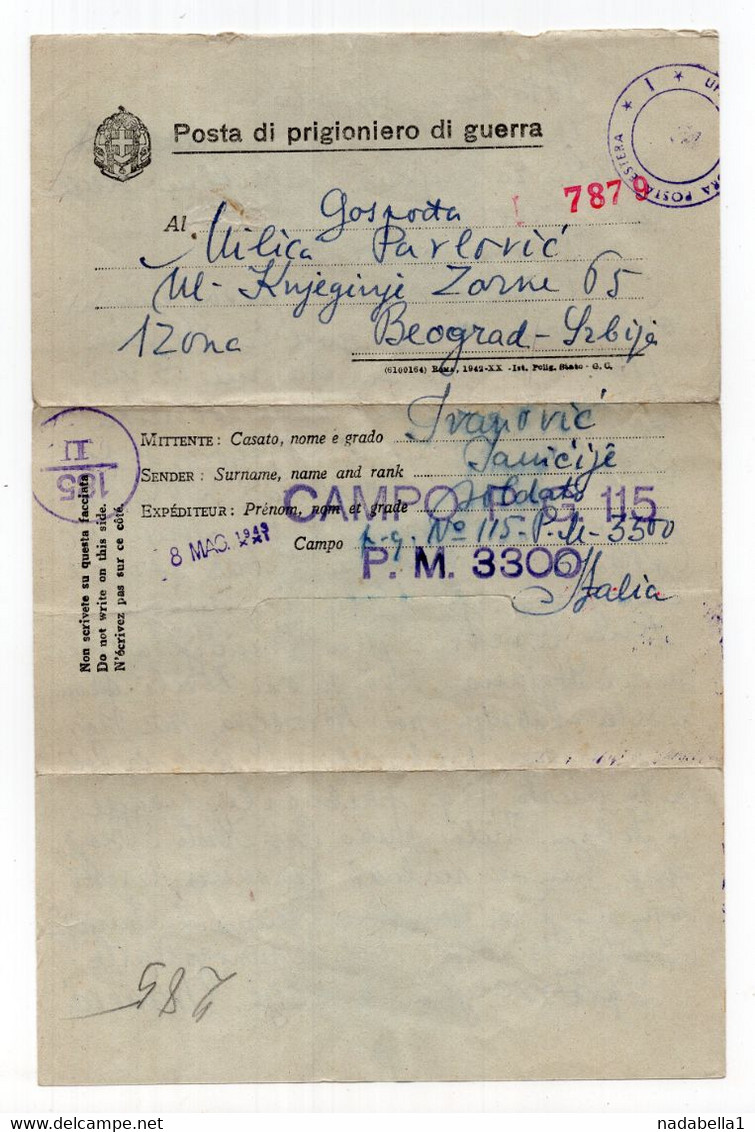 Posta di prigioniero di guerra
★ I ★
POSTA ESTERA
7879
Gospođa
Al Milica Pavlović
Ul- Knjeginje Zorke 65
1 Zona Beograd - Srbija
(6100164) ROMA, 1942-XX - Ist. Polig. Stato - G. C.
MITTENTE : Casato, nome e grado Ivanović
SENDER : Surname, name and rank Janićije
EXPÉDITEUR : Prénom, nom et grade soldato
CAMPO P. G. 115
Campo p.g. No 115-P.M-3300
P. M. 3300
Italia
8 MAG. 1943 XXI
II
Non scrivete su questa facciata
Do not write on this side.
N'écrivez pas sur ce côté.
285
nadabella1